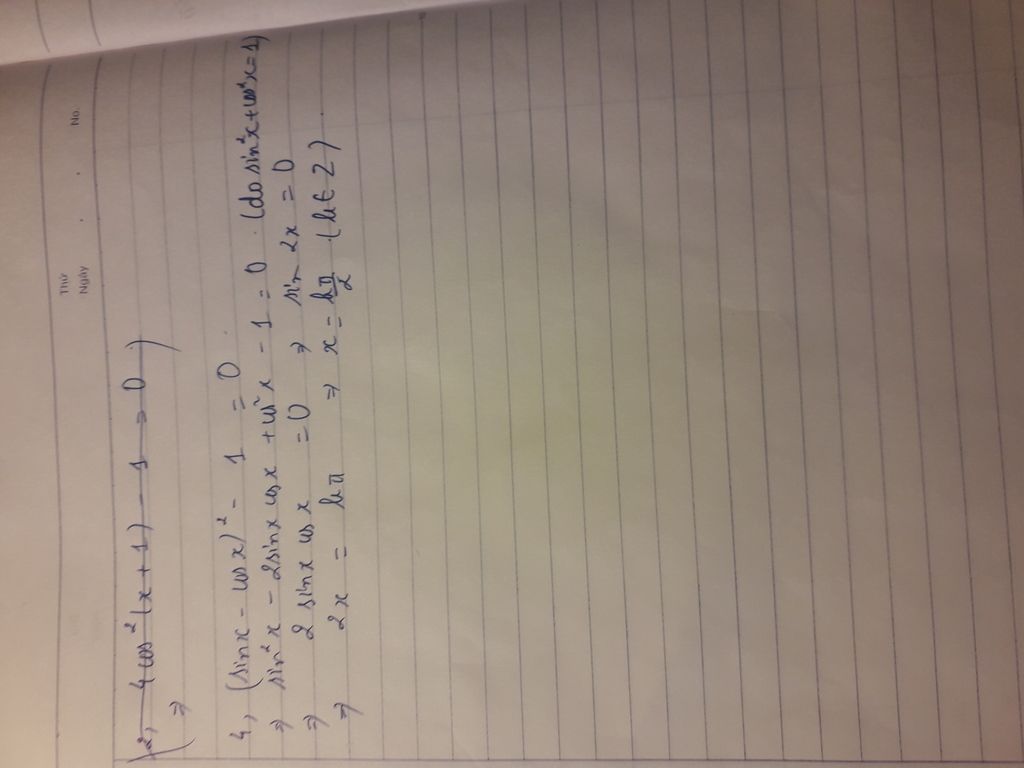 No.
Thứ
Ngày
(2, 4cos²(x+1) - 1 = 0)
⇒
4, (sinx - cosx)² - 1 = 0
⇒ sin²x - 2sinxcosx + cos²x - 1 = 0 (do sin²x+cos²x=1)
⇒ 2sinxcosx = 0 ⇒ sin 2x = 0
⇒ 2x = kπ ⇒ x = kπ/2 (k∈Z)